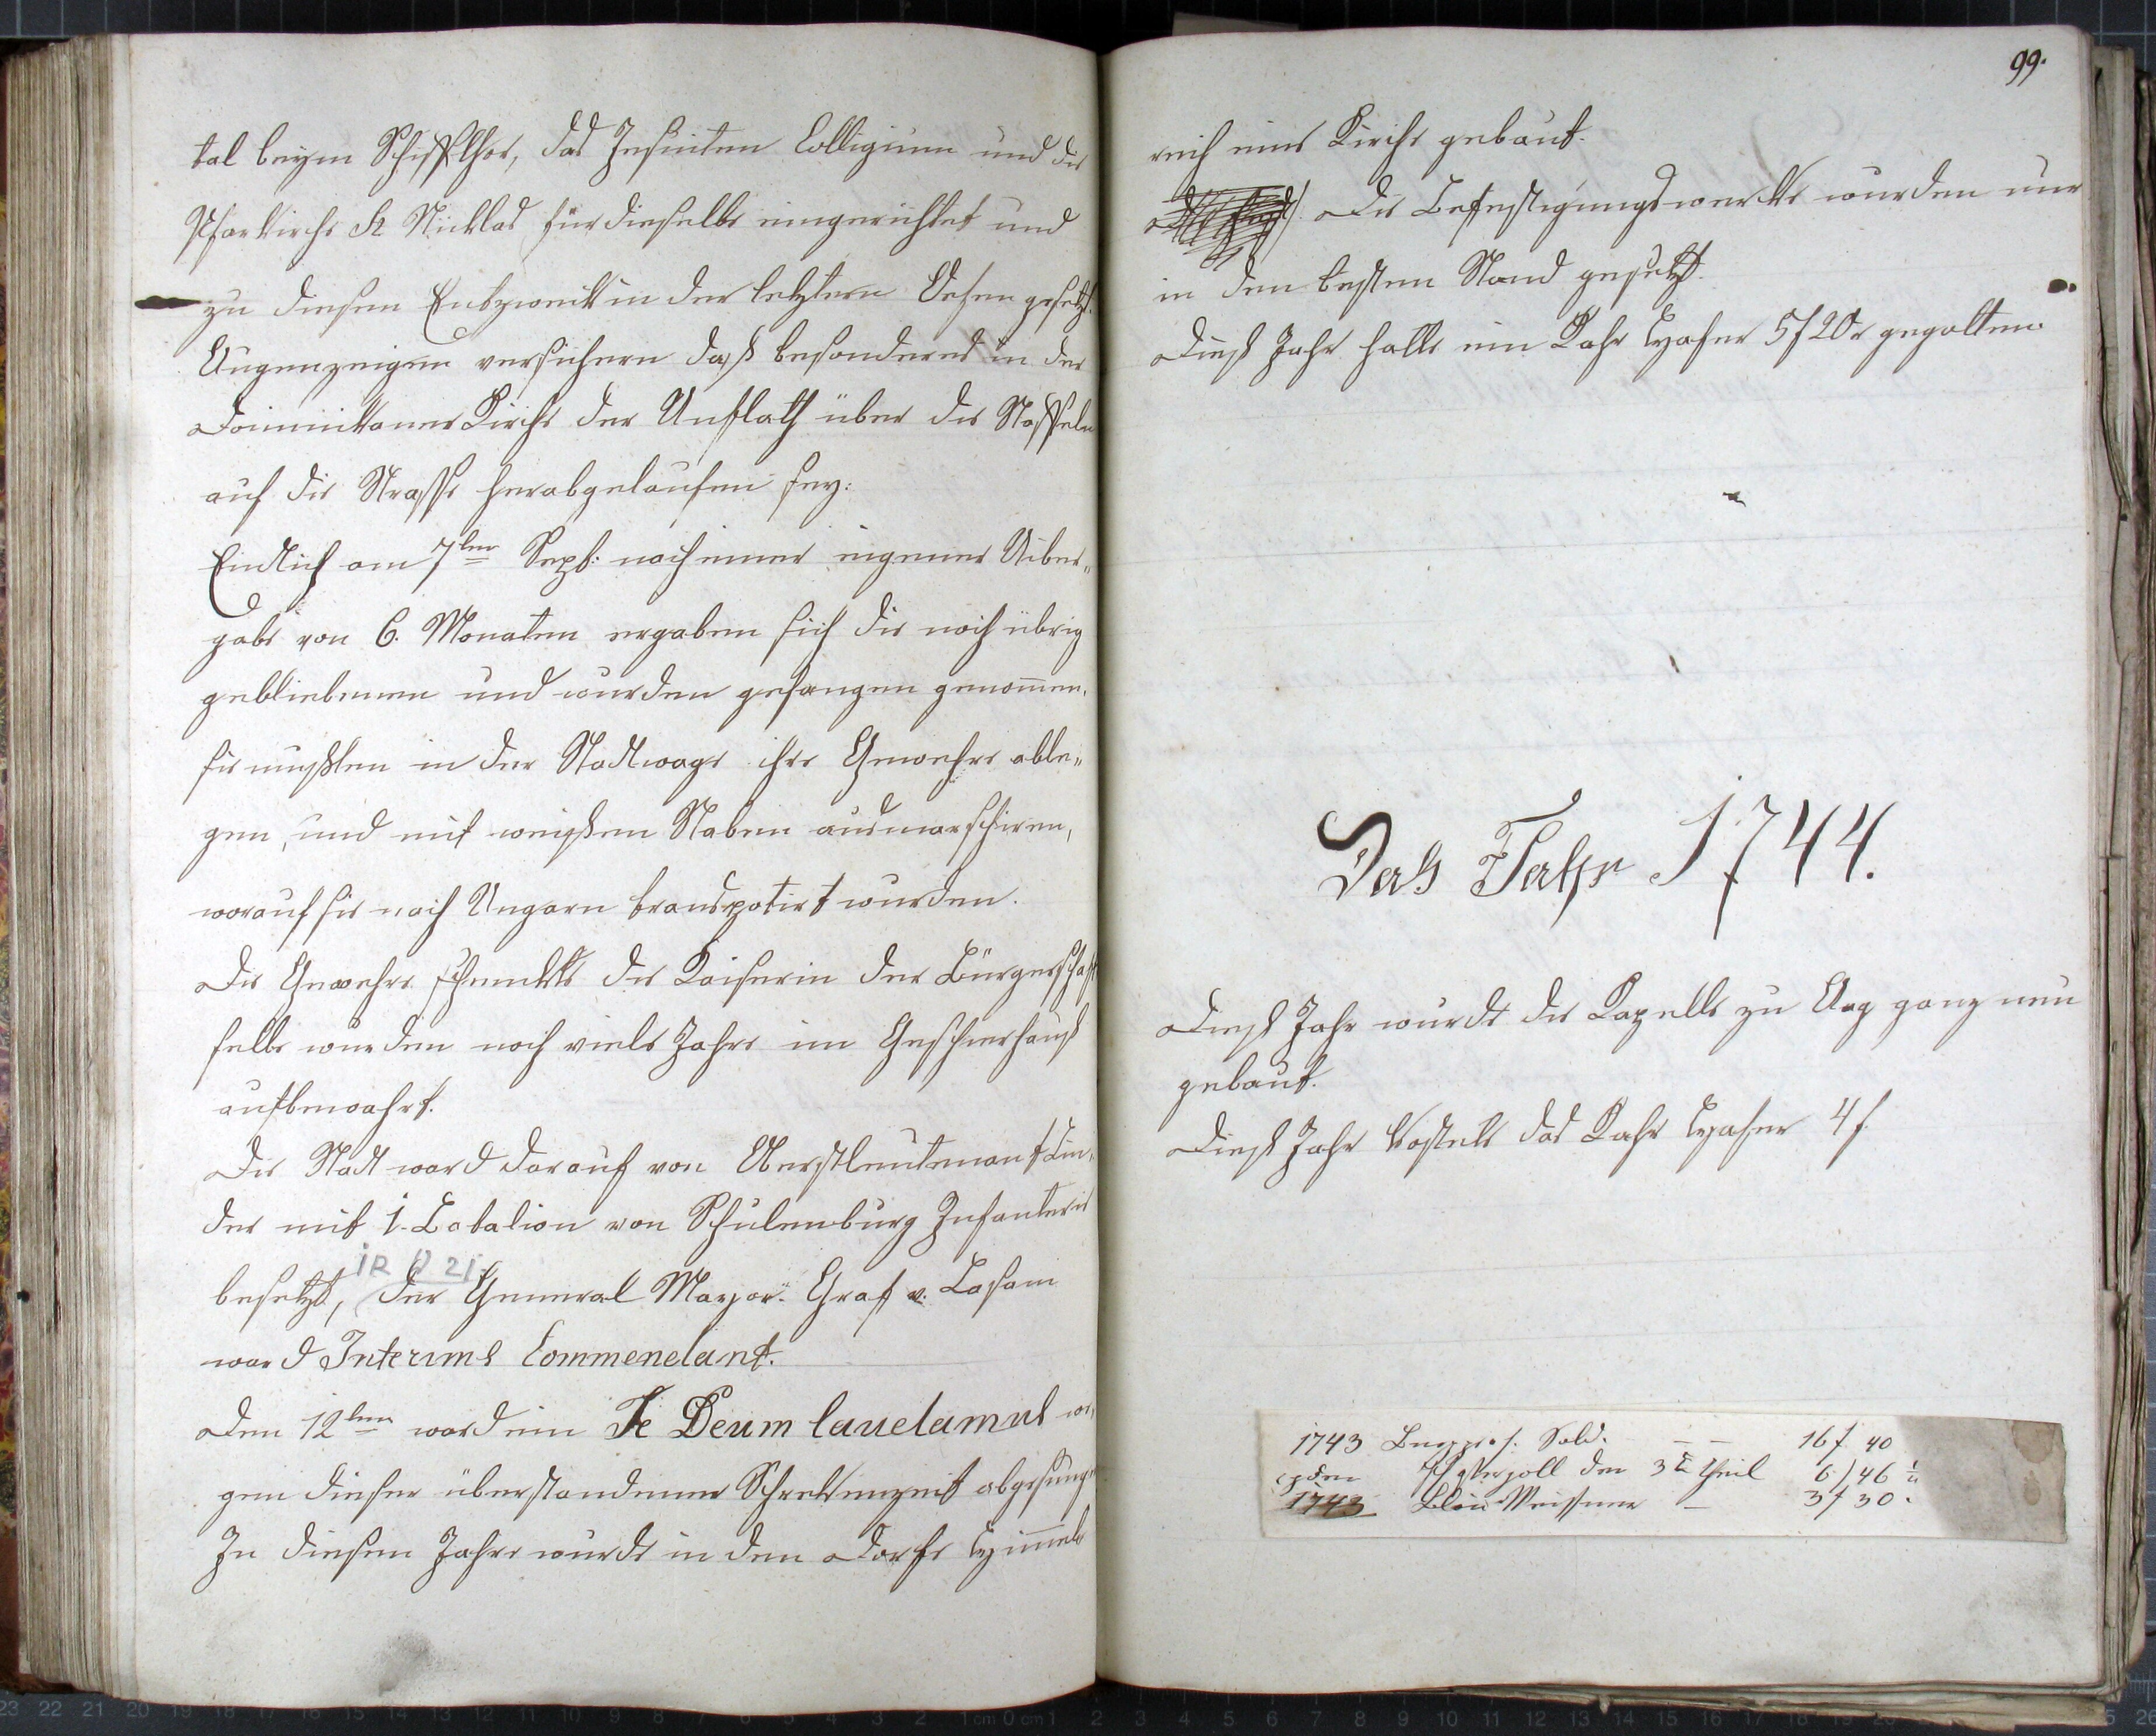 tal beym Schifthor, das Jesuiten Colligium und die
Pfarkirche St Nicklas für dieselbe eingerichtet und
zu diesen Entzweck in der letztern Oefen gesetzt.
Augenzeigen versichern daß besonders in der
Dominikaner Kirche der Unflath über die Staffeln
auf die Strasse herabgelaufen sey:
Endlich am 7ten Sept: nach einer eigener Uiber„
gabe von 6. Monaten ergaben sich die noch übrig
gebliebenen und wurden gefangen genom̄en.
sie mußten in der Stadtwage ihre Gewehre able„
gen, und mit weißen Staben ausmarschiren,
worauf sie nach Ungarn transpotirt wurden.
Die Gewehre schenckte die Kaiserin der Bürgerschaft
selbe wurden noch viele Jahre im Geschierhauß
aufbewahrt.
Die Stadt ward darauf von Oberstleutenant Lin„
der mit 1. Batalion von Schulenburg Infanterie
IR 21
besetzt, der General Mayor Graf v.
ward Interims Commendant.
Den 12ten ward ein Te Deum laudamus we„
gen dieser überstandener Schreckenzeit abgesungen
In diesen Jahre wurde in dem Dorfe Him̄el
99.
reich eine Kirche gebaut.
Die Befestigungswercke wurden nur
in den besten Stand gesetzt.
Dieß Jahr hatte ein Kahr Hafer 5f 20x gegolten.
Das Jahr 1744.
Dieß Jahr wurde die Kapelle zu Aag ganz neu
gebaut.
Dieß Jahr kostete das Kahr Hafer 4f.
1743 Sold. — — 16f 40
den 3ten Theil 6f 46
1743 — 3f 30.